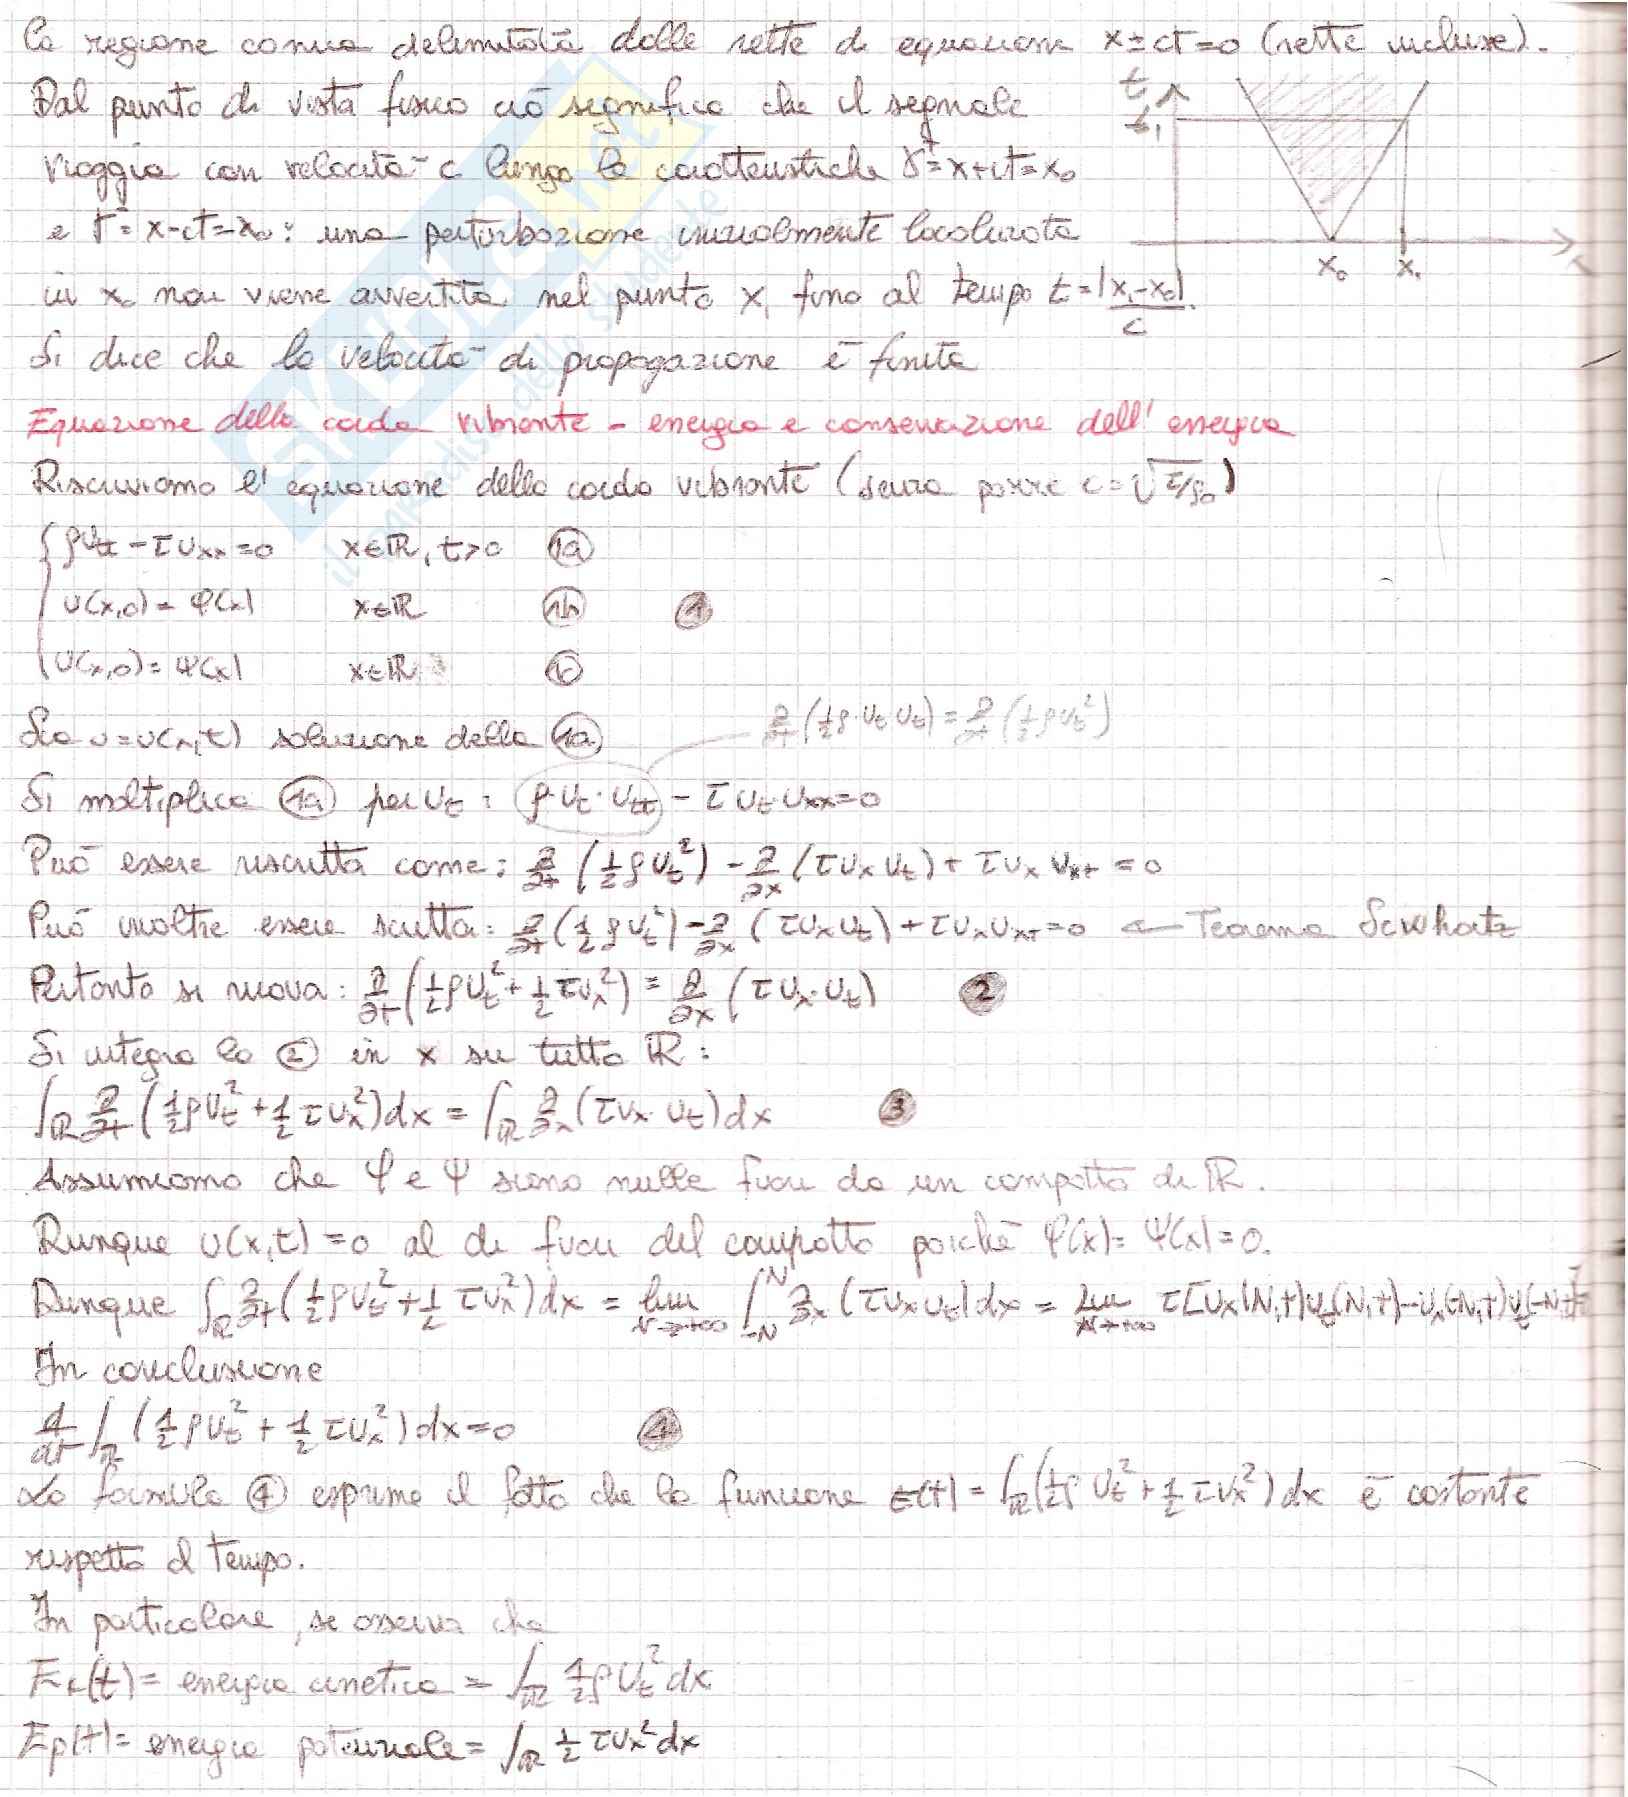 La regione conica delimitata dalle rette di equazione x±ct=0 (rette incluse).
Dal punto di vista fisico ciò significa che il segnale
viaggia con velocità c lungo le caratteristiche γ⁺=x+ct=x₀
e γ⁻= x-ct=x₀: una perturbazione inizialmente localizzata
in x₀ non viene avvertita nel punto x₁ fino al tempo t=|x₁-x₀|/c.
Si dice che la velocità di propagazione è finita
t
t₁
x₀ x₁
Equazione della corda vibrante - energia e conservazione dell'energia
Riscriviamo l'equazione della corda vibrante (senza porre c=√τ/ρ₀)
ρutt - τuxx=0 x∈ℝ, t>0 1a
u(x,0)= φ(x) x∈ℝ 1b 1
u(x,0)= ψ(x) x∈ℝ 1c
Sia u=u(x,t) soluzione della 1a
∂/∂t (½ρ·ut ut) = ∂/∂t (½ρut²)
Si moltiplica 1a per ut: ρ·ut·utt - τut·uxx=0
Può essere riscritta come: ∂/∂t (½ρut²) - ∂/∂x (τux ut) + τux uxt = 0
Può inoltre essere scritta: ∂/∂t (½ρut²) - ∂/∂x (τux ut) + τux uxt=0 ← Teorema Scwhartz
Pertanto si ricava: ∂/∂t (½ρut² + ½τux²) = ∂/∂x (τux·ut) 2
Si integra la 2 in x su tutto ℝ:
∫ℝ ∂/∂t (½ρut² + ½τux²)dx = ∫ℝ ∂/∂x (τux·ut)dx 3
Assumiamo che φ e ψ siano nulle fuori da un compatto di ℝ.
Dunque u(x,t)=0 al di fuori del compatto poichè φ(x)= ψ(x)=0.
Dunque ∫ℝ ∂/∂t (½ρut² + ½τux²)dx = lim N→+∞ ∫-N^N ∂/∂x (τux ut)dx = lim N→+∞ τ[ux(N,t)ut(N,t)-ux(-N,t)ut(-N,t)]
In conclusione
d/dt ∫ℝ (½ρut² + ½τux²)dx=0 4
La formula 4 esprime il fatto che la funzione E(t)= ∫ℝ(½ρut² + ½τux²)dx è costante
rispetto al tempo.
In particolare, si osserva che
Ek(t)= energia cinetica = ∫ℝ ½ρut²dx
Ep(t)= energia potenziale= ∫ℝ ½τux²dx